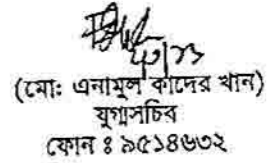 (মো: এনামুল কাদের খান)
যুগ্মসচিব
ফোন ঃ ৯৫১৪৬৩২